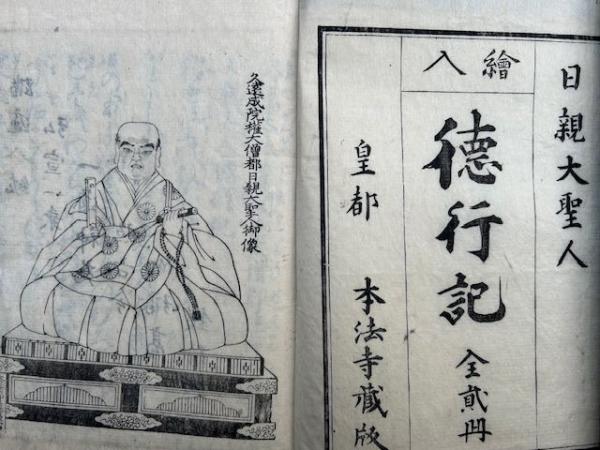 日親大聖人
繪入
德行記 全貳冊
皇都 本法寺藏版
久遠成院權大僧都日親大聖人御像